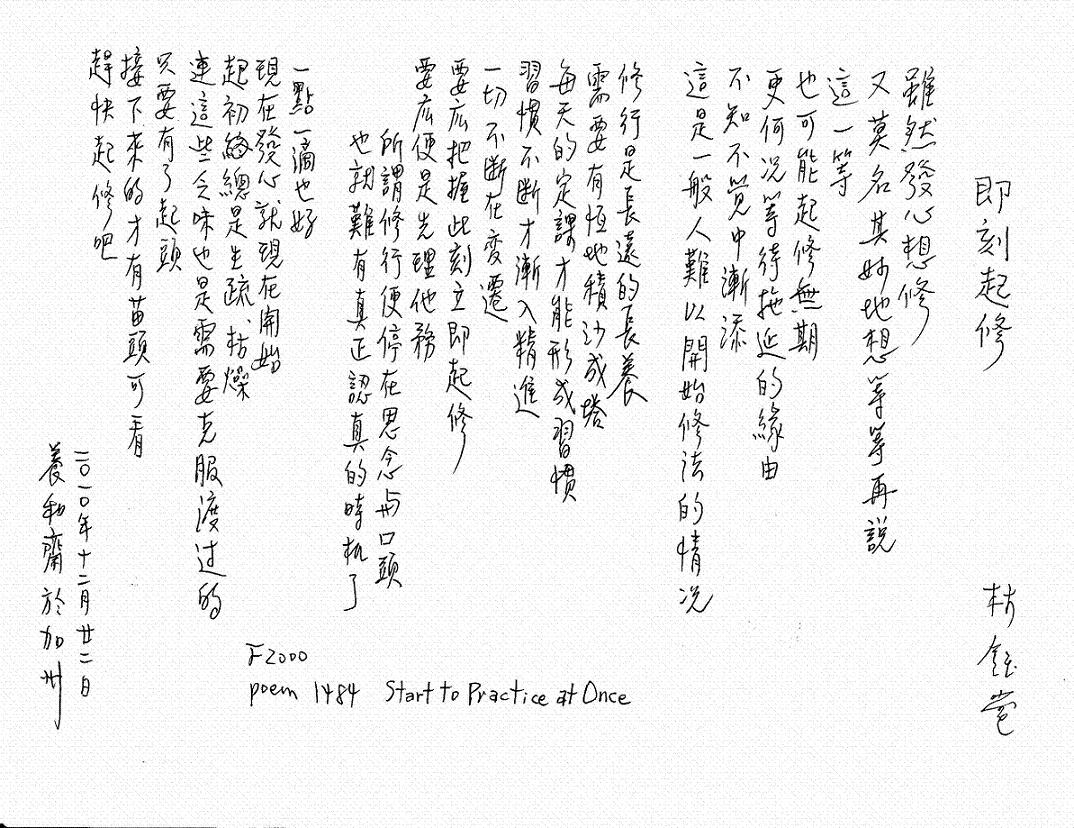 即刻起修
林鈺堂
雖然發心想修
又莫名其妙地想等等再説
這一等
也可能起修無期
更何况等待拖延的緣由
不知不覺中漸添
這是一般人難以開始修法的情况
修行是長遠的長養
需要有恒地積沙成塔
每天的定課才能形成習慣
習慣不斷才漸入精進
一切不斷在変遷
要広把握此刻立即起修
要広便是先理他務
所謂修行便停在思念与口頭
也就難有真正認真的時机了
一點一滴也好
現在發心就現在開始
起初總是生疏、枯燥
連這些乏味也是需要克服渡过的
只要有了起頭
接下來的才有苗頭可看
趕快起修吧
二〇一〇年十二月廿二日
養和齋於加州
F2000
poem 1484 Start to Practice at Once